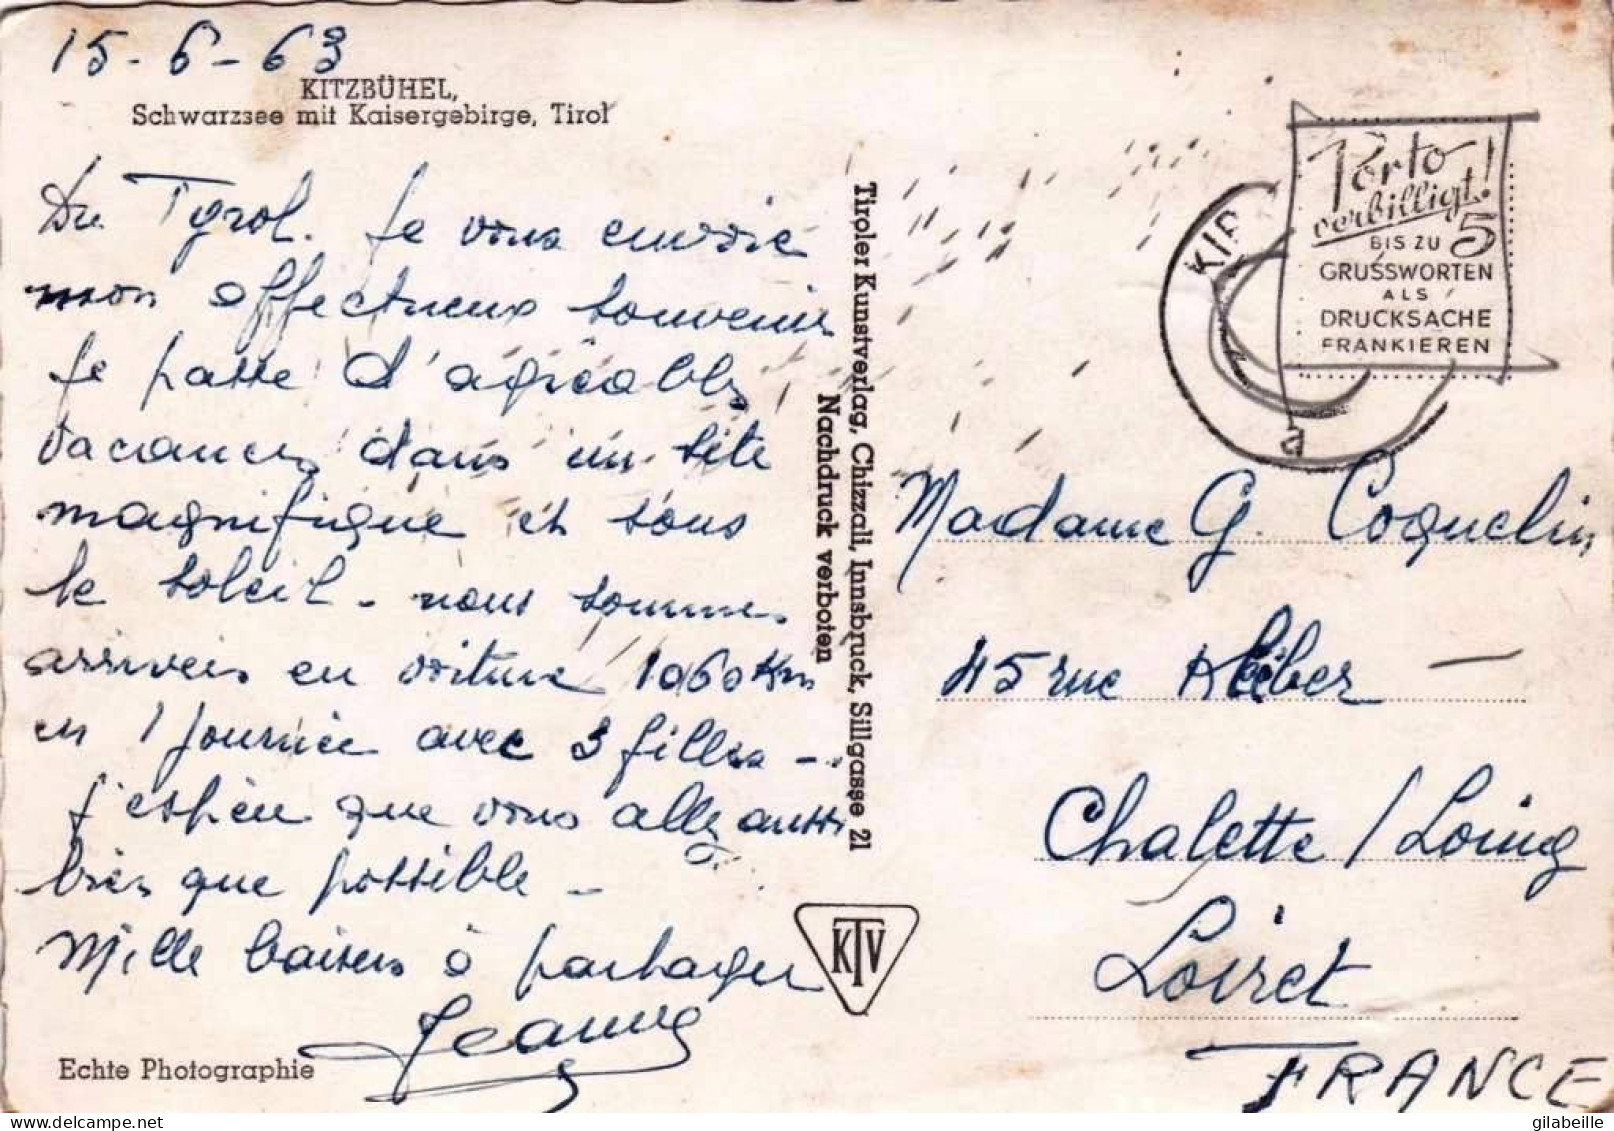 15-6-63
KITZBÜHEL,
Schwarzsee mit Kaisergebirge, Tirol
Du Tyrol. Je vous envoie
mon affectueux souvenir
Je passe d'agréables
vacances dans un site
magnifique et sous
le soleil - nous sommes
arrivés en voiture 1060 Km
en 1 journée avec 3 filles -
J'espère que vous allez aussi
bien que possible -
Mille baisers à partager
Jeanne
Echte Photographie
Tiroler Kunstverlag, Chizzali, Innsbruck, Sillgasse 21
Nachdruck verboten
KTV
KIR
Porto
verbilligt!
BIS ZU 5
GRUSSWORTEN
ALS
DRUCKSACHE
FRANKIEREN
Madame G. Coquelin
45 rue Kléber -
Chalette / Loing
Loiret
FRANCE
delcampe.net
gilabeille